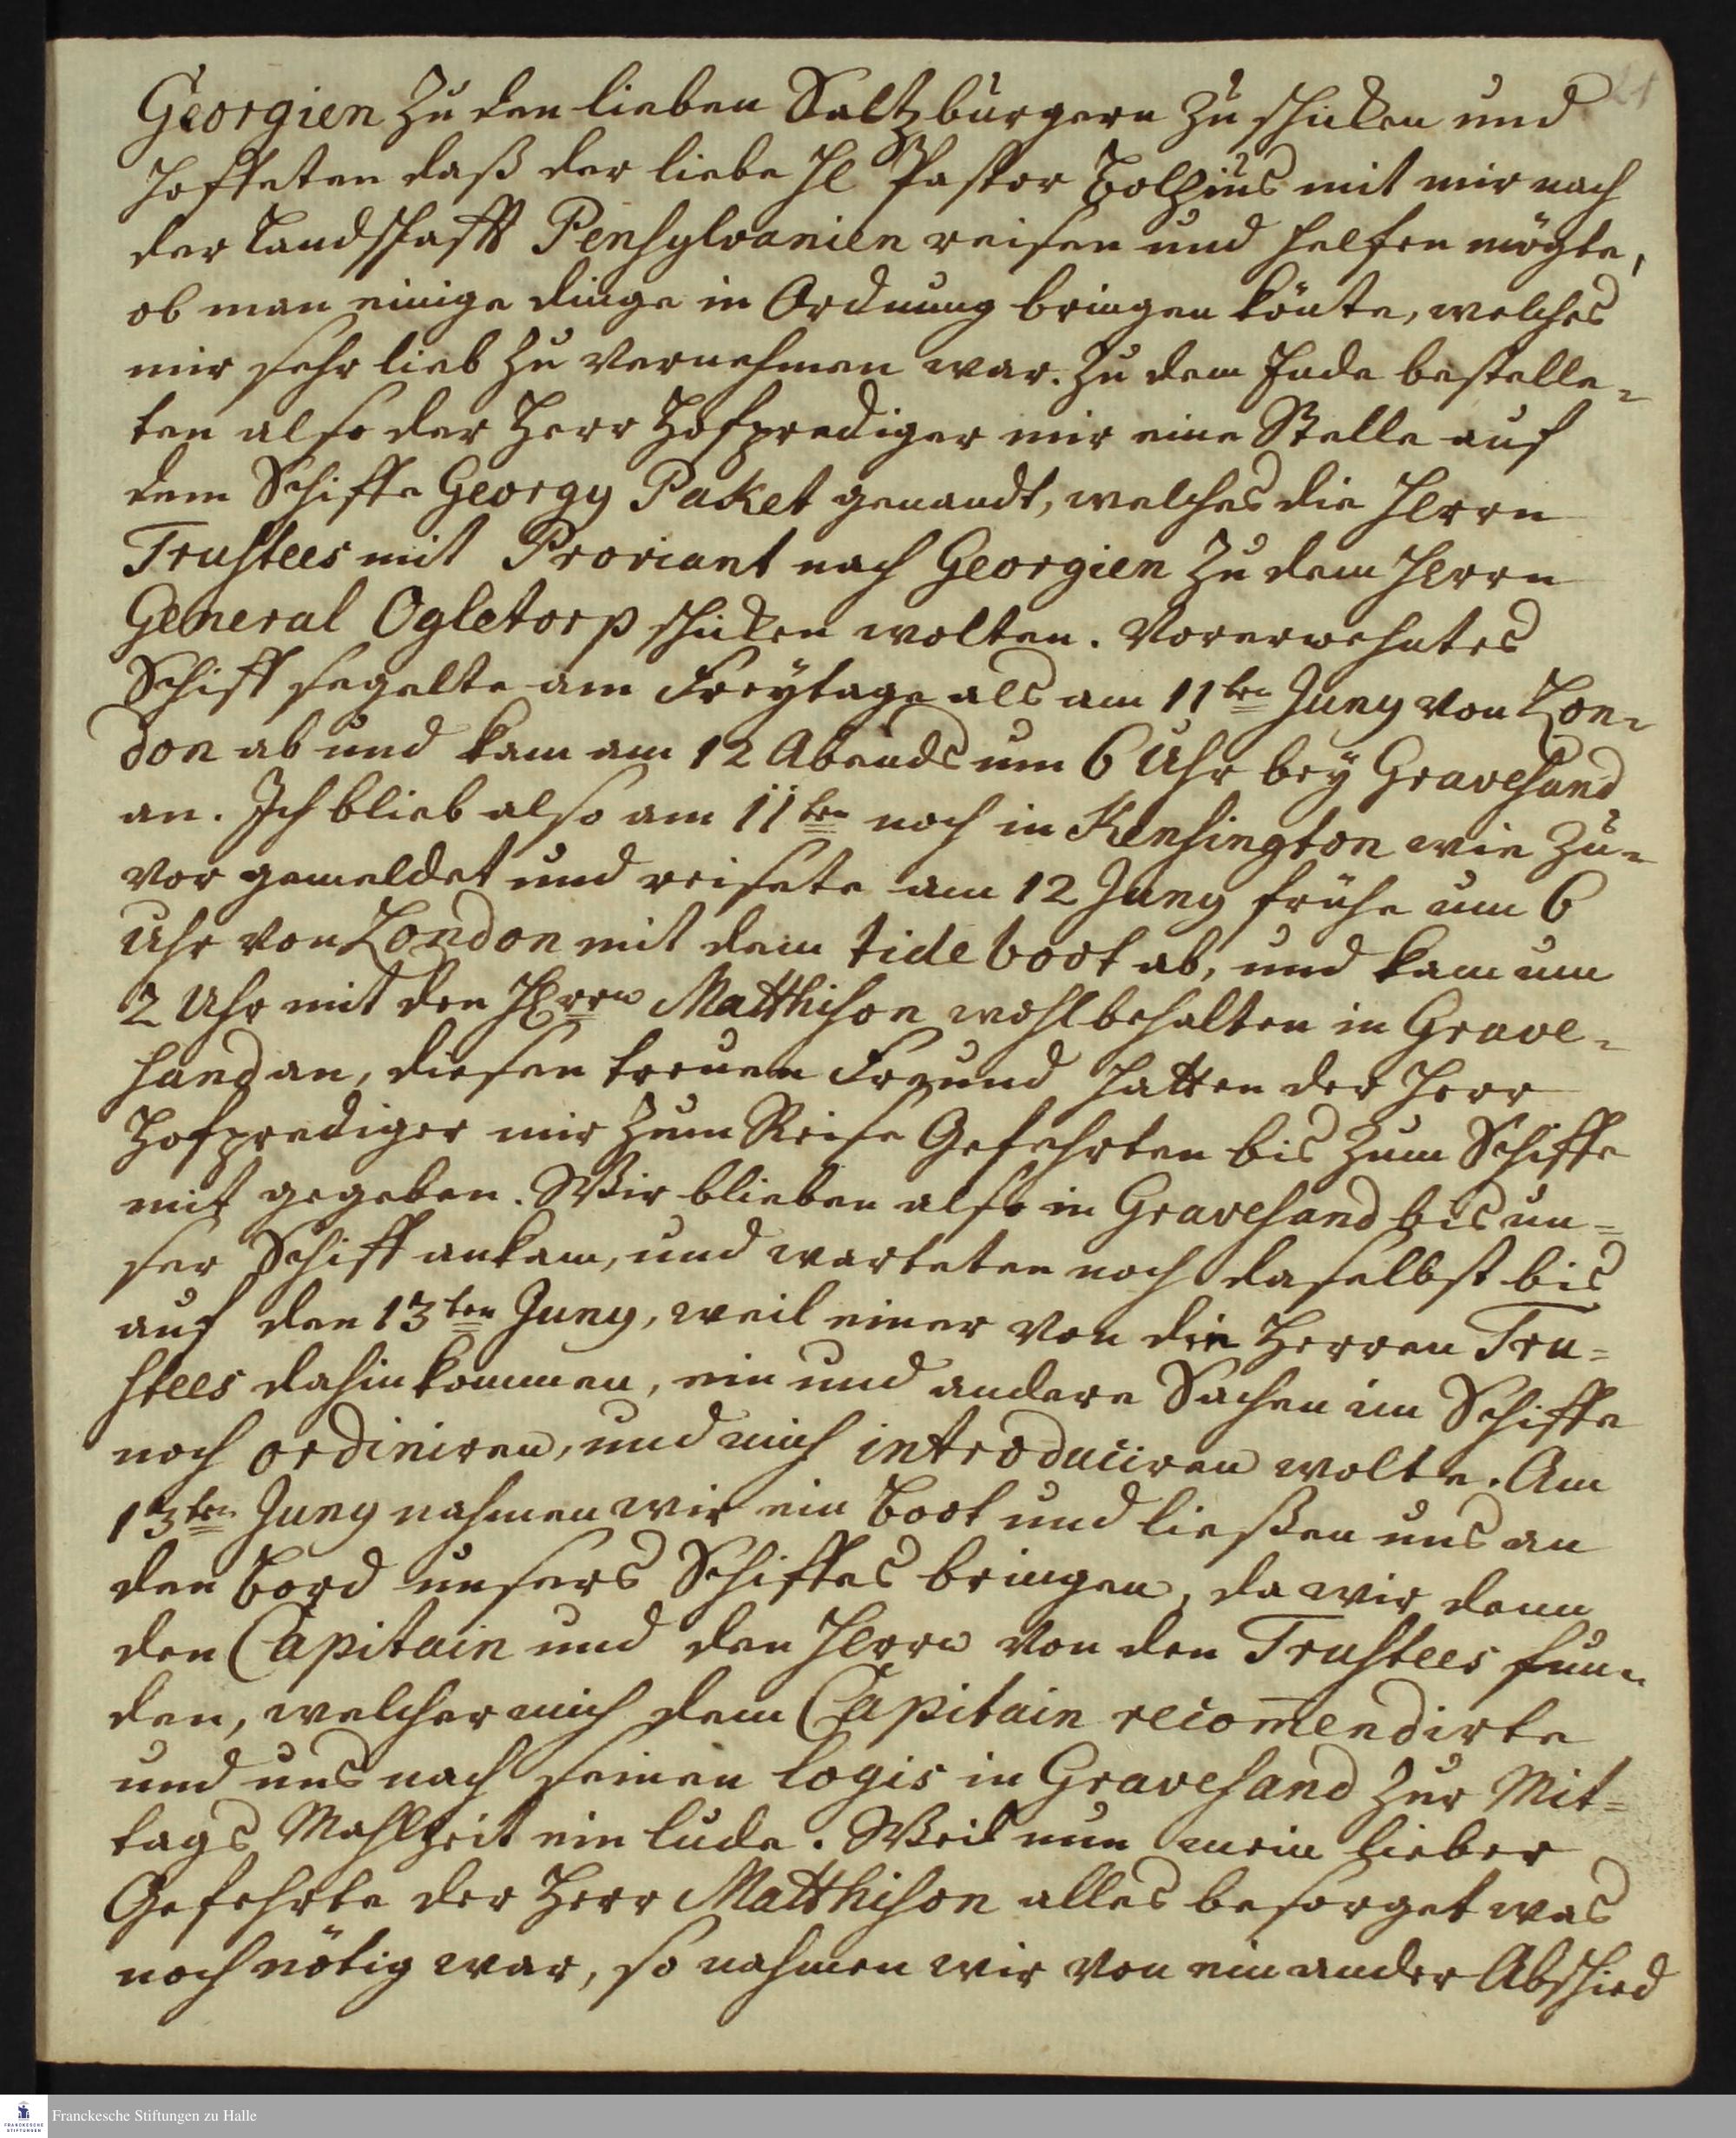 21
Georgien zu den lieben Saltzburgern zu schicken und
hoffeten daß der liebe H. Pastor Bolzius mit mir nach
der Landschafft Pensylvanien reisen und helfen mögte,
ob man einige dinge in Ordnung bringen könte, welches
mir sehr lieb zu vernehmen war. Zu dem Ende bestelle-
ten also der Herr Hofprediger mir eine Stelle auf
dem Schiffe Georgy Paket genandt, welches die Herrn
Trustees mit Proviant nach Georgien zu dem Herrn
General Ogletorp schicken wolten. Vorerwehntes
Schiff segelte am Freÿtage als am 11ten Juny von Lon-
don ab und kam am 12 Abends um 6 Uhr beÿ Gravesand
an. Ich blieb also am 11ten noch in Kensington wie zu-
vor gemeldet und reisete am 12 Juny frühe um 6
Uhr von London mit dem tide boot ab, und kam um
2 Uhr mit den Herrn Matthison wohlbehalten in Grave-
sand an, diesen treuen Freund hatten der Herr
Hofprediger mir zum Reise Gefehrten bis zum Schiffe
mit gegeben. Wir blieben also in Gravesand bis un-
ser Schiff ankam, und warteten noch daselbst bis
auf den 13ten Juny, weil einer von die Herren Tru-
stees dahin kommen, ein und andere Sachen im Schiffe
noch ordiniren, und mich introduciren wolte. Am
13ten Juny nahmen wir ein Boot und ließen uns an
den Bord unsers Schiffes bringen, da wir denn
den Capitain und den Herrn von den Trustees fun-
den, welcher mich dem Capitain recom̅endirte
und uns nach seinen logis in Gravesand zur Mit-
tags Mahlzeit ein lude. Weil nun mein lieber
Gefehrte der Herr Matthison alles besorget was
noch nötig war, so nahmen wir von einander Abschied
Franckesche Stiftungen zu Halle
FRANCKESCHE
STIFTUNGEN